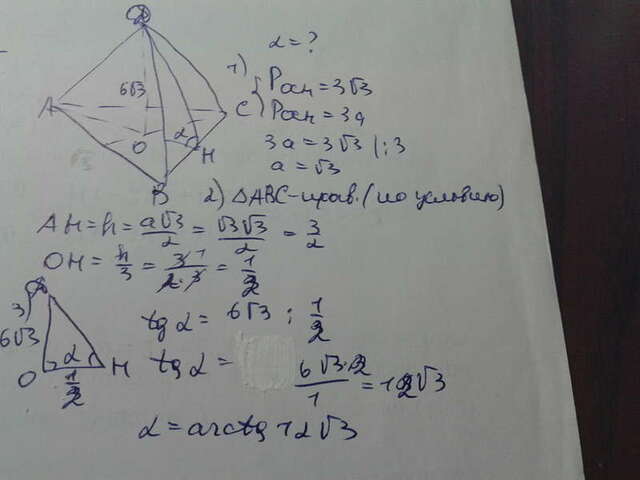 D
6√3
A
C
O
α
H
B
α = ?
1) { Pосн = 3√3
Pосн = 3a
3a = 3√3 |:3
a = √3
2) △ABC – прав. (по условию)
AH = h = a√3/2 = √3√3/2 = 3/2
OH = h/3 = 3 1/2·3 = 1/2
3)
6√3
α
O
H
1/2
tg α = 6√3 : 1/2
tg α = 6√3·2/1 = 12√3
α = arctg 12√3